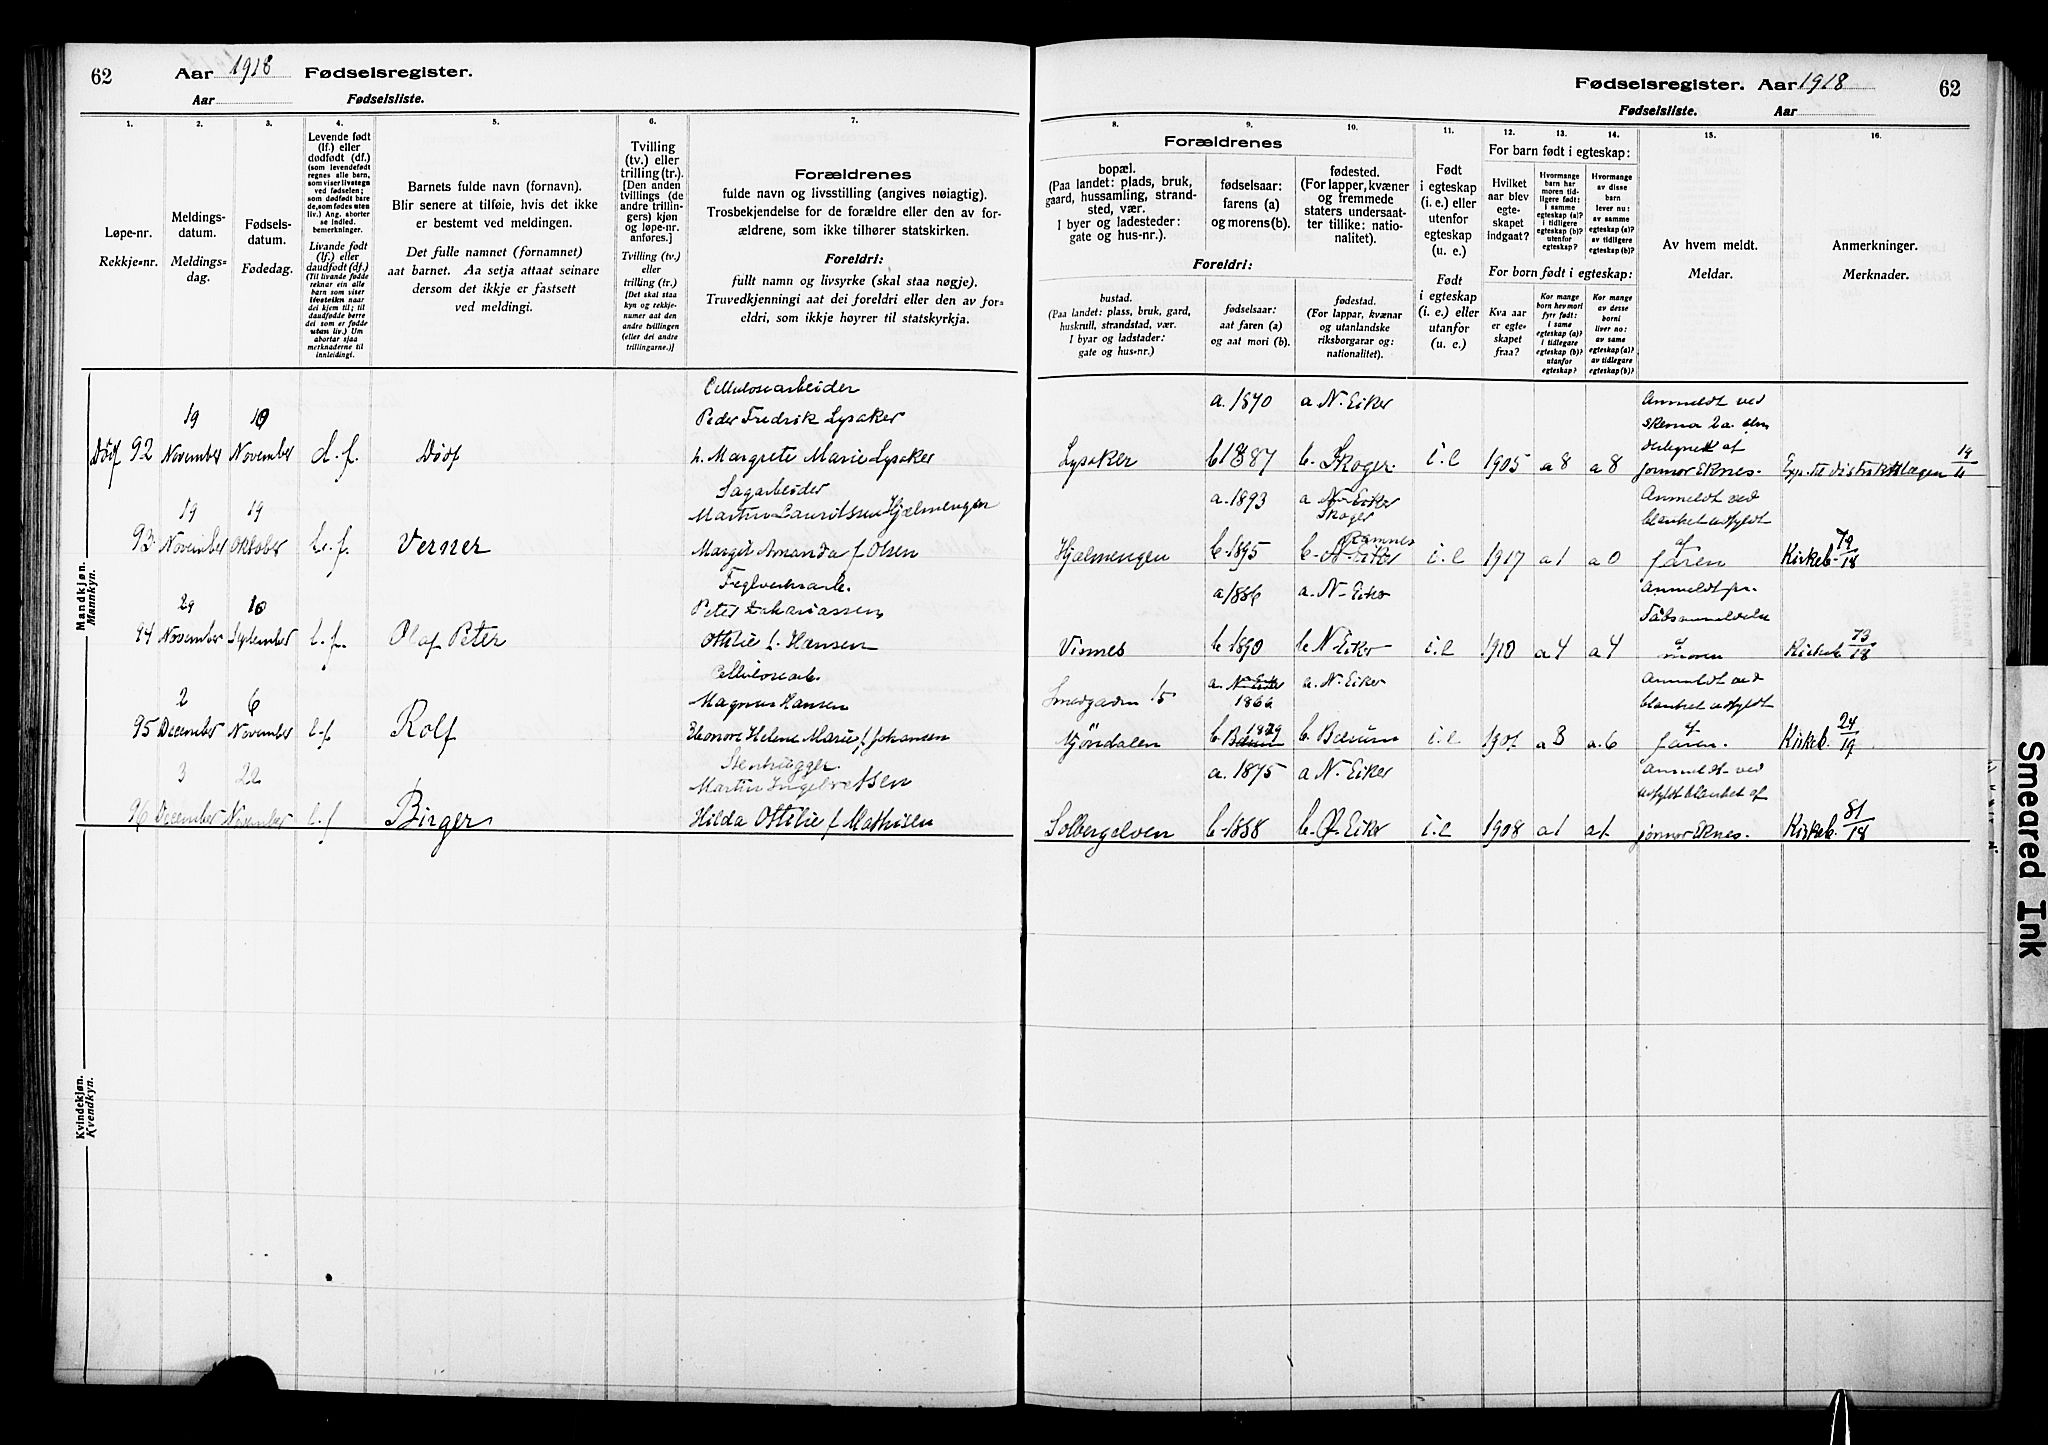 62
Aar 1918 Fødselsregister.
Aar
Fødselsliste.
1.
2.
3.
4.
5.
6.
7.
Løpe-nr.
Rekkje=nr.
Meldings-
datum.
Meldings=
dag.
Fødsels-
datum.
Fødedag.
Levende født
(lf.) eller
dødfødt (df.)
(som levendefødt
regnes alle barn,
som viser livstegn
ved fødselen;
som dødfødt bare
de, som fødes uten
liv.) Ang. aborter
se indled.
bemerkninger.
Livande født
(lf.) eller
daudfødt (df.)
(Til livande fødde
reknar ein alle
born som viser
livsteikn naar
dei kjem til; til
daudfødde berre
dei som er fødde
utan liv.) Um
abortar sjaa
merknaderne til
innleidingi.
Barnets fulde navn (fornavn).
Blir senere at tilføie, hvis det ikke
er bestemt ved meldingen.
Det fulle namnet (fornamnet)
aat barnet. Aa setja attaat seinare
dersom det ikkje er fastsett
ved meldingi.
Tvilling
(tv.) eller
trilling (tr.).
[Den anden
tvillings (de
andre trillin-
gers) kjøn
og løpe-nr.
anføres.]
Tvilling (tv.)
eller
trilling (tr.)
[Det skal staa
kyn og rekkje-
numer aat den
andre tvillingen
(eller dei andre
trillingarne.)]
Forældrenes
fulde navn og livsstilling (angives nøiagtig).
Trosbekjendelse for de forældre eller den av for-
ældrene, som ikke tilhører statskirken.
Foreldri:
fullt namn og livsyrke (skal staa nøgje).
Truvedkjenningi aat dei foreldri eller den av for=
eldri, som ikkje høyrer til statskyrkja.
Mandkjøn.
Mannkyn.
Cellulosearbeider
19 10 Peder Fredrik Lysaker
Dødf 92 November November d.f. Dødf h. Margrete Marie Lysaker
Sagarbeider
19 19 Martin Lauritssen Hjælmengen
93 November Oktober l.f. Verner Margit Amanda f. Olsen
Teglverksarb.
29 10 Peter Zakariassen
94 November September l.f. Olaf Peter Ottilie f. Hansen
Cellulosearb.
2 6 Magnus Hansen
95 December November l.f Rolf Eleonore Helene Marie f. Johansen
Stenhugger
3 22 Martin Ingebretsen
96 December November l.f Birger Hilda Ottilie f Mathisen
Kvindekjøn.
Kvendkyn.
Fødselsregister. Aar 1918
62
Fødselsliste. Aar
8.
9.
10.
11.
12.
13.
14.
15.
16.
Forældrenes
bopæl.
(Paa landet: plads, bruk,
gaard, hussamling, strand-
sted, vær.
I byer og ladesteder:
gate og hus-nr.).
fødselsaar:
farens (a)
og morens(b).
fødested.
(For lapper, kvæner
og fremmede
staters undersaat-
ter tillike: natio-
nalitet).
Foreldri:
bustad.
(Paa landet: plass, bruk, gard,
huskrull, strandstad, vær.
I byar og ladstader:
gate og hus=nr.)
fødselsaar:
aat faren (a)
og aat mori (b).
fødestad.
(For lappar, kvænar
og utanlandske
riksborgarar og:
nationalitet).
Født
i egteskap
(i. e.) eller
utenfor
egteskap
(u. e.)
Født
i egteskap
(i. e.) eller
utanfor
(u. e.)
For barn født i egteskap:
Hvilket
aar blev
egte-
skapet
indgaat?
Hvormange
barn har
moren tid-
ligere født:
i samme
egteskap (a)?
i tidligere
egteskap (b)?
utenfor
egteskap?
Hvormange
av disse
barn
lever nu:
av samme
egteskap (a)?
av tidligere
egteskap (b)?
For born født i egteskap:
Kva aar
er egte-
skapet
fraa?
Kor mange
born hev mori
fyrr født:
i same
egteskap (a)?
i tidlegare
egteskap (b)?
utanfor
egteskap?
Kor mange
av desse
borni
liver no:
av same
egteskap (a)?
av tidlegare
egteskap (b)?
Av hvem meldt.
Meldar.
Anmerkninger.
Merknader.
a. 1870 a N. Eiker Anmeldt ved
skema 2 a.
Lysaker b 1887 b. Skoger. i.e 1905 a 8 a 8 jormor Eknes. Exp. til distriktslægen 19/11
a. 1893 a N. Eiker Anmeldt ved
Skoger blanket udfyldt
Ramnes af
Hjælmengen b. 1895 b. N. Eiker i.e 1917 a 1 a 0 faren Kirkeb. 79/18
a 1886 a. N. Eiker Anmeldt pr.
Vismes b. 1890 b N. Eiker i.e 1910 a 4 a 4 moren Kirkeb. 73/18
Smedgaden 15 a. N. Eiker 1866 a. N. Eiker Anmeldt ved
blanket udfyldt
Mjøndalen b. Bærum 1879 b. Bærum i.e 1901 a 8 a. 6 af faren. Kirkeb. 24/19
a. 1875 a N. Eiker Anmeldt ved
udfyldt blanket af
Solbergelven b. 1888 b. Ø. Eiker i.e 1908 a 1 a 1. jormor Eknes. Kirkeb. 81/18
Smeared Ink